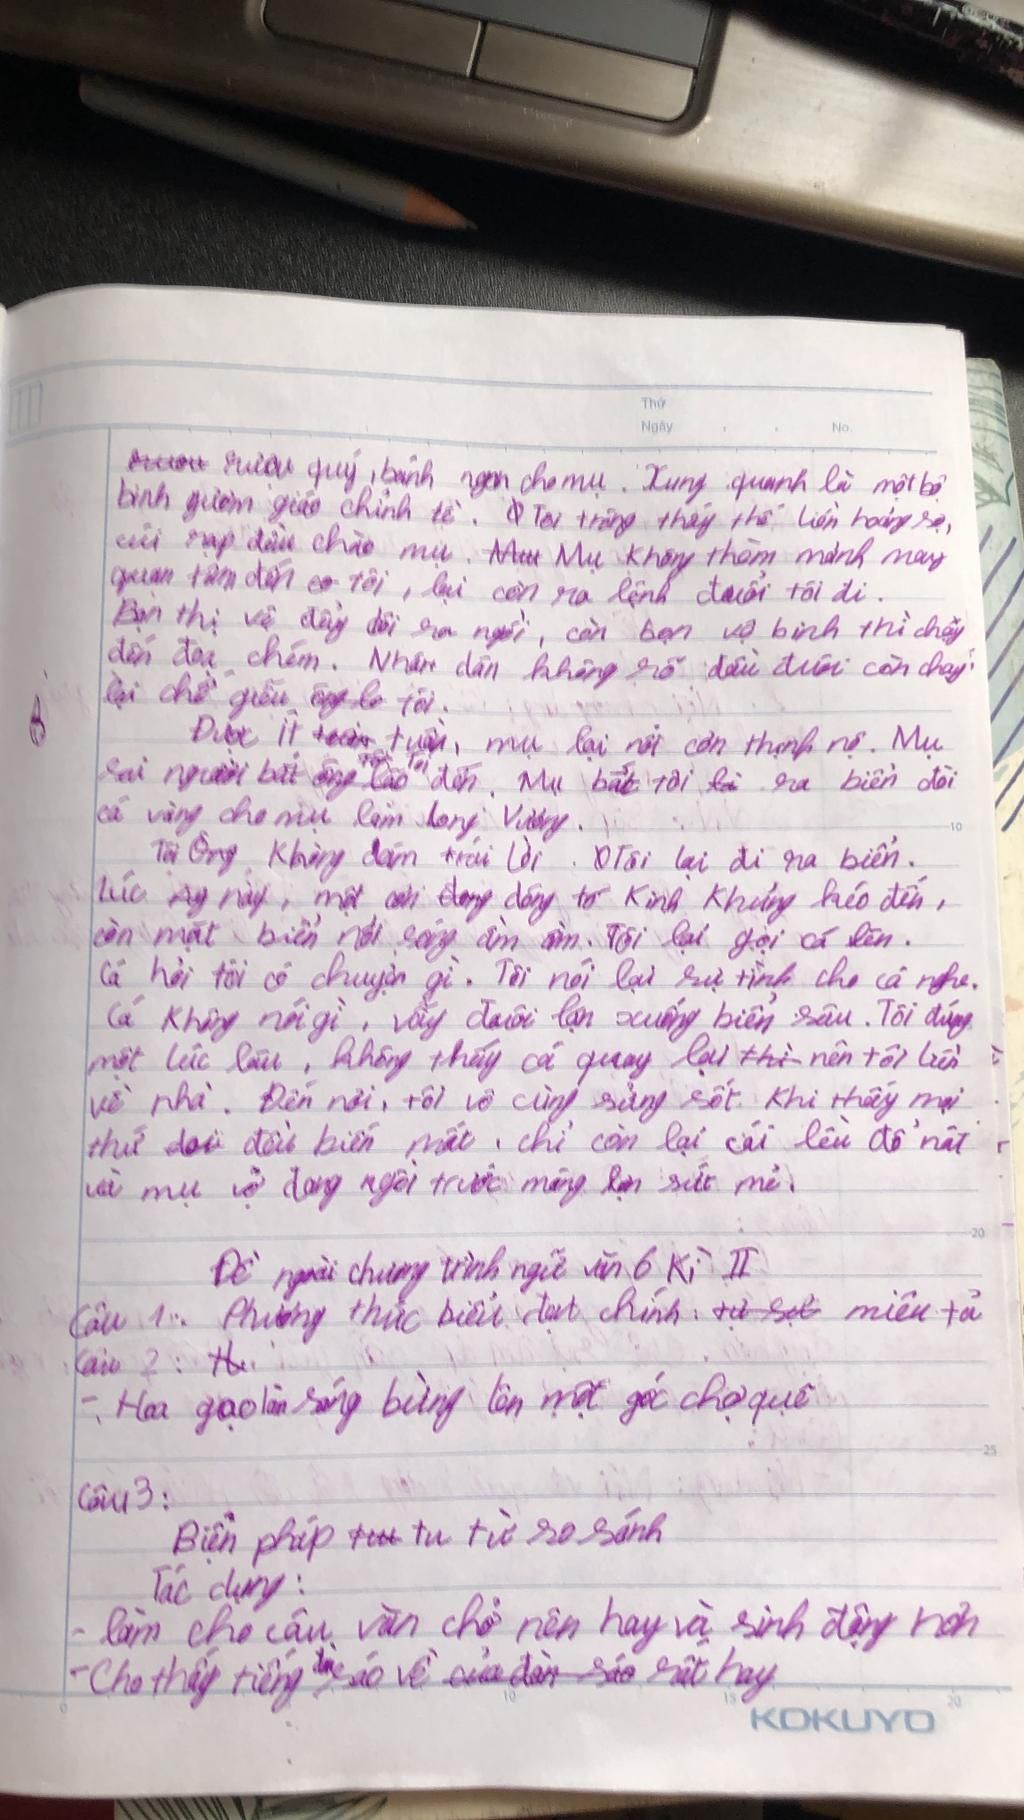 Thứ
Ngày . . No.
rượu quý, bánh ngon cho mụ. Xung quanh là một bộ
binh gươm giáo chỉnh tề. Tôi trông thấy thế liền hoảng sợ,
cúi rạp đầu chào mụ. Mụ không thèm mảnh may
quan tâm đến tôi, lại còn ra lệnh đuổi tôi đi.
Bọn thị vệ đẩy tôi ra ngoài, còn bọn vệ binh thì chạy
đến đọa chém. Nhân dân không rõ đầu đuôi còn chạy
lại chế giễu tôi.
Được ít tuần, mụ lại nổi cơn thịnh nộ. Mụ
sai người bắt tôi đến. Mụ bắt tôi ra biển đòi
cá vàng cho mụ làm Long Vương.
10
Tôi không dám trái lời. Tôi lại đi ra biển.
Lúc này, một cơn dông tố kinh khủng kéo đến,
còn mặt biển nổi sóng ầm ầm. Tôi lại gọi cá lên.
Cá hỏi tôi có chuyện gì. Tôi nói lại sự tình cho cá nghe.
Cá không nói gì, vẫy đuôi lặn xuống biển sâu. Tôi đứng
một lúc lâu, không thấy cá quay lại nên tôi liền
về nhà. Đến nơi, tôi vô cùng sửng sốt khi thấy mọi
thứ đều biến mất, chỉ còn lại cái lều đổ nát
và mụ vợ đang ngồi trước máng lợn sứt mẻ.
20
Đề ngoài chương trình ngữ văn 6 Kì II
Câu 1: Phương thức biểu đạt chính: miêu tả
Câu 2:
-, Hoa gạo làn sóng bừng lên một góc chợ quê
25
Câu 3:
Biện pháp tu từ so sánh
Tác dụng:
- làm cho câu văn chở nên hay và sinh động hơn
- Cho thấy tiếng sáo về rất hay
0 10 15 20
KOKUYO